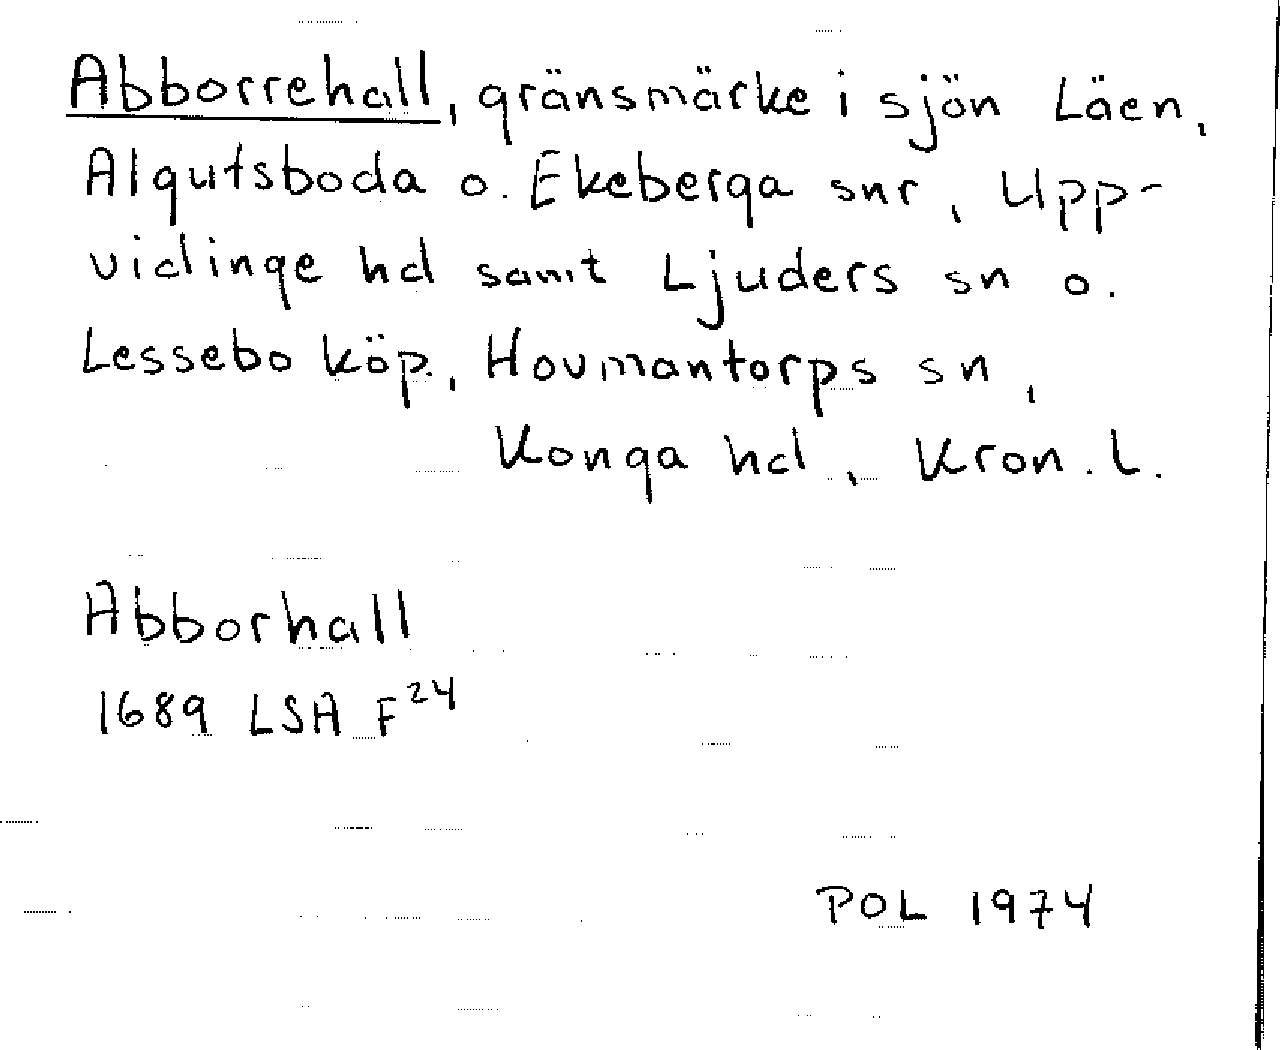 Abborrehall, gränsmärke i sjön Läen,
Algutsboda o. Ekeberga snr, Upp-
vidinge hd samt Ljuders sn o.
Lessebo köp., Hovmantorps sn,
Konga hd, Kron. l.
Abborhall
1689 LSA F²⁴
POL 1974